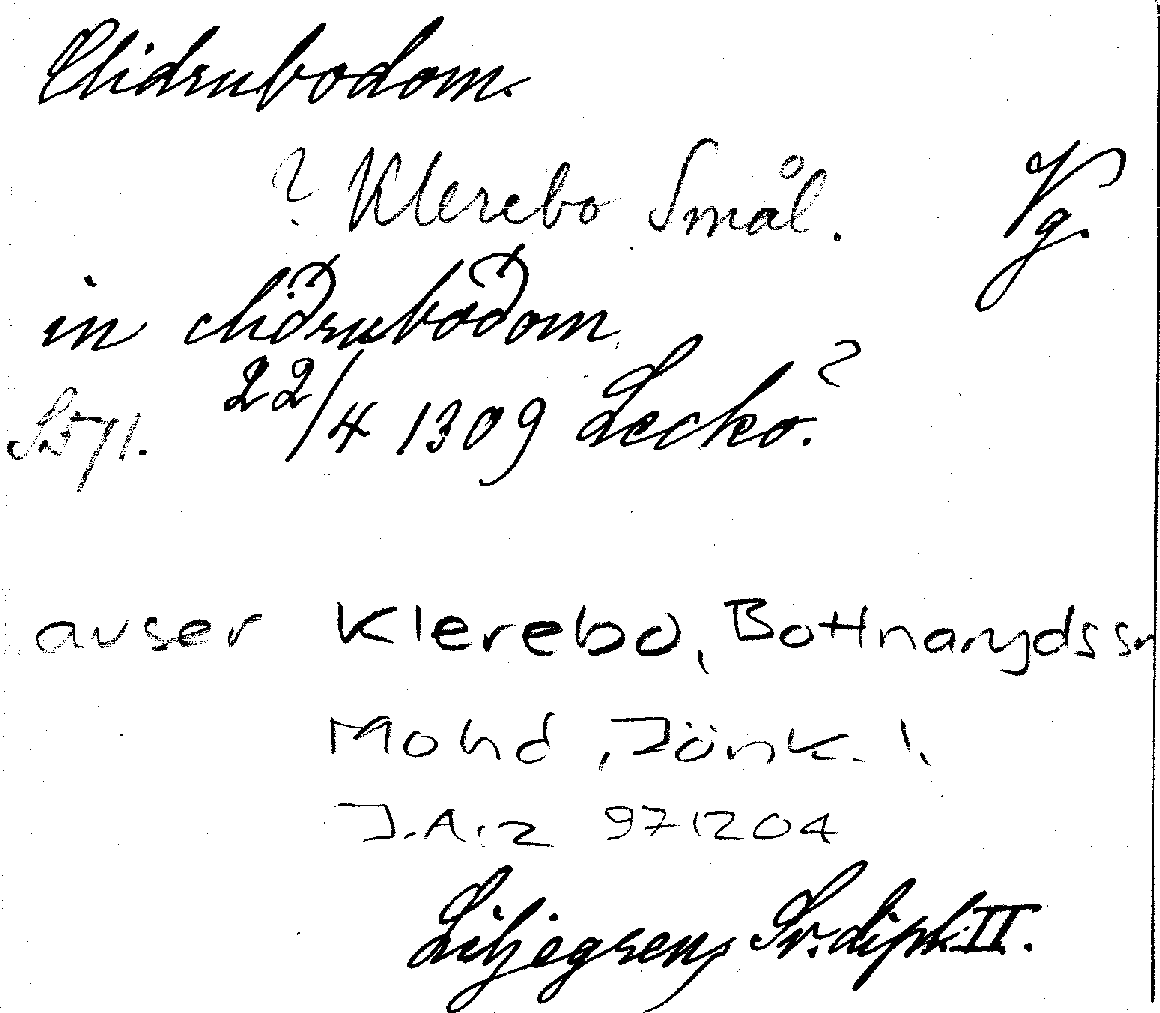 Clidrubodom.
? Klerebo Smål. Vg.
in cliðruboðom
22/4 1309 Lecko.?
avser Klerebo, Bottnarydssn
Mohd, Jönk. l.
J.A.z 971204
Liljegren, Sv. dipl. II.